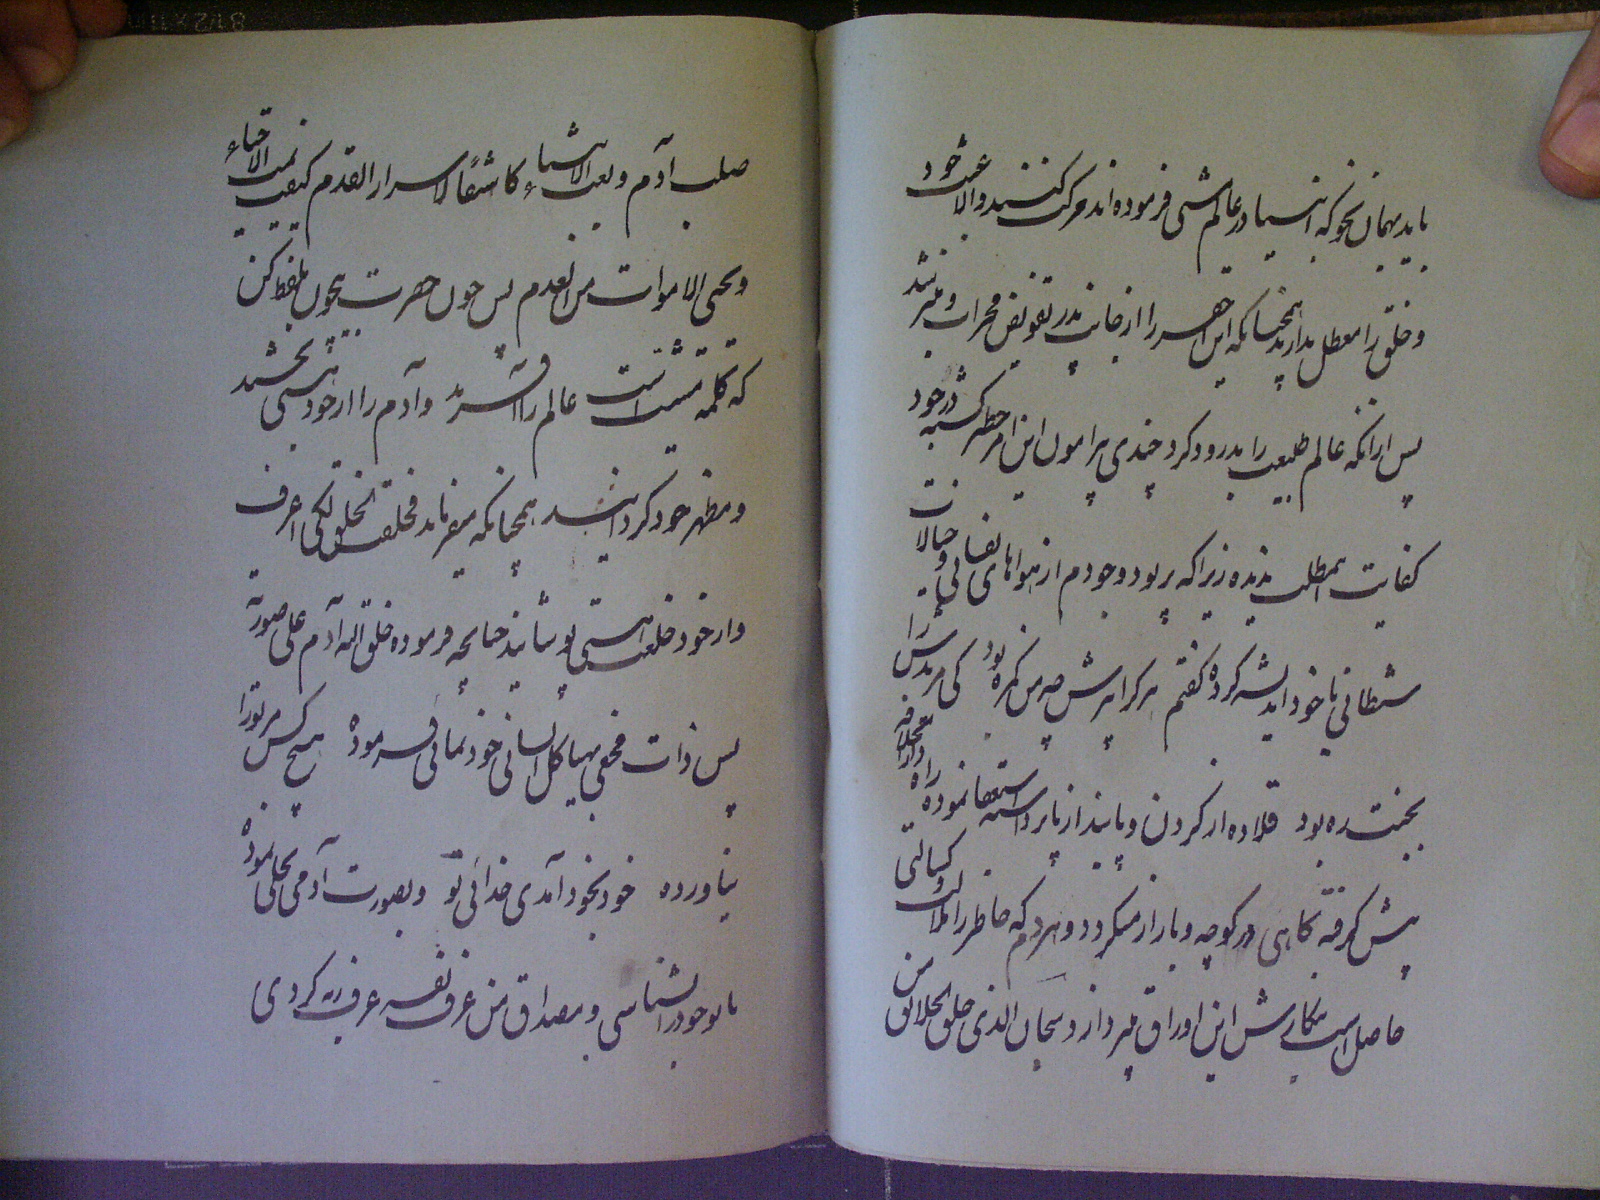 باید بهمان نحو که انبیا در عالم مشی فرموده اند حرکت کنند والا عبث خود
و خلق را معطل ندارند همچنانکه این احقر را از جانب پدر تفویض محراب و منبر شد
پس از آنکه عالم طبیعت را بدرود کرد چندی پیرامون این امر خطیر گشته در خود
کفایت این مطلب ندیده زیرا که پر بود وجودم از هواهای نفسانی و خیالات
شیطانی با خود اندیشه کرده گفتم هر کرا پرسش چه من گمره بود کی مریدش را
بجنت ره بود قلاده از گردن و پابند از پا برداشته استعفا نموده راه
پیش گرفته گاهی در کوچه و بازار میگردد و هر دم که خاطر را ملالت و کسالتی
حاصل است بنگارش این اوراق میپردازد سبحان الذی خلق الخلائق من
صلب آدم و بعث الاشیاء کاشفا لاسرار القدم کیف یمیت الاحیاء
و یحیی الاموات من العدم پس چون حضرت بیچون بلفظ کن
که کلمه مشیت است عالم را آفرید و آدم را از خود هستی بخشید
و مظهر خود گردانید همچنانکه میفرماید فخلقت الخلق لکی اعرف
و از خود خلعت هستی پوشانید چنانچه فرموده خلق الله آدم علی صورته
پس ذات مخفی بهیاکل انسانی خودنمائی فرموده هیچ کس مر تو را
نیاورده خود بخود آمدی خدائی تو و بصورت آدمی تجلی نموده
تا بوجود انشناسی و مصداق من عرف نفسه عرف ربه کردی